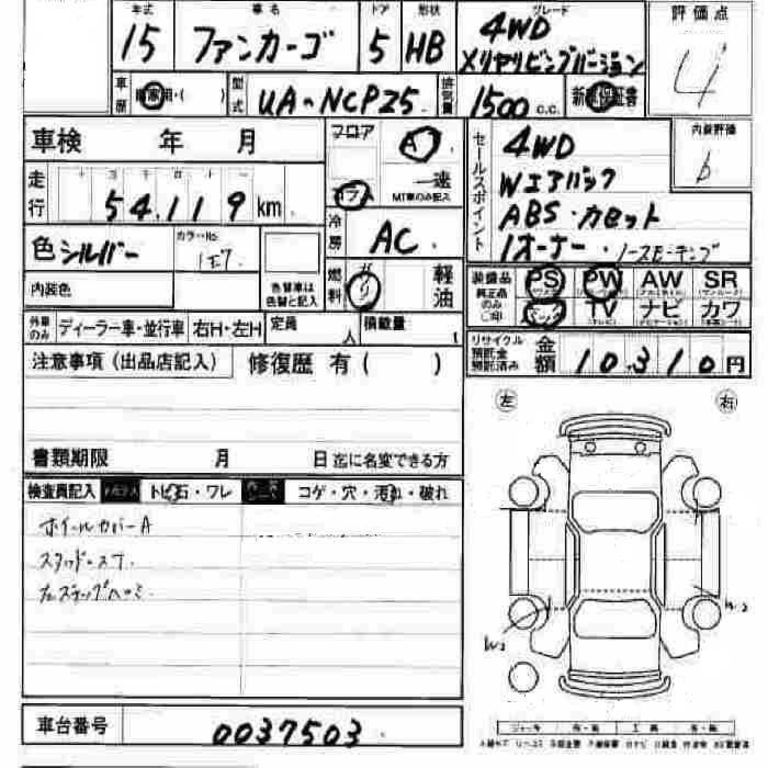 年式 車名 ドア 形状 グレード 評価点
15 ファンカーゴ 5 HB 4WD 4
車歴 自家用・( ) 型式 UA-NCP25 排気量 1500 c.c. 新車保証書
車検 年 月 フロア A セールスポイント 4WD 内装評価
走行 54,119 km コラム 速 MT車のみ記入 Wエアバック b
冷房 AC ABS・カセット
色 シルバー カラーNo. 1E7 1オーナー・ノースモーキング
内装色 色替車は色替と記入 燃料 ガソリン 軽油 装備品 純正品のみ○印 PS PW AW SR
TV ナビ カワ
外車のみ ディーラー車・並行車 右H・左H 定員 人 積載量 t リサイクル預託金預託済み 金額 10,310円
注意事項(出品店記入) 修復歴 有( )
左 右
書類期限 月 日 迄に名変できる方
検査員記入 トビ石・ワレ コゲ・穴・汚れ・破れ
ホイールカバーA
車台番号 0037503